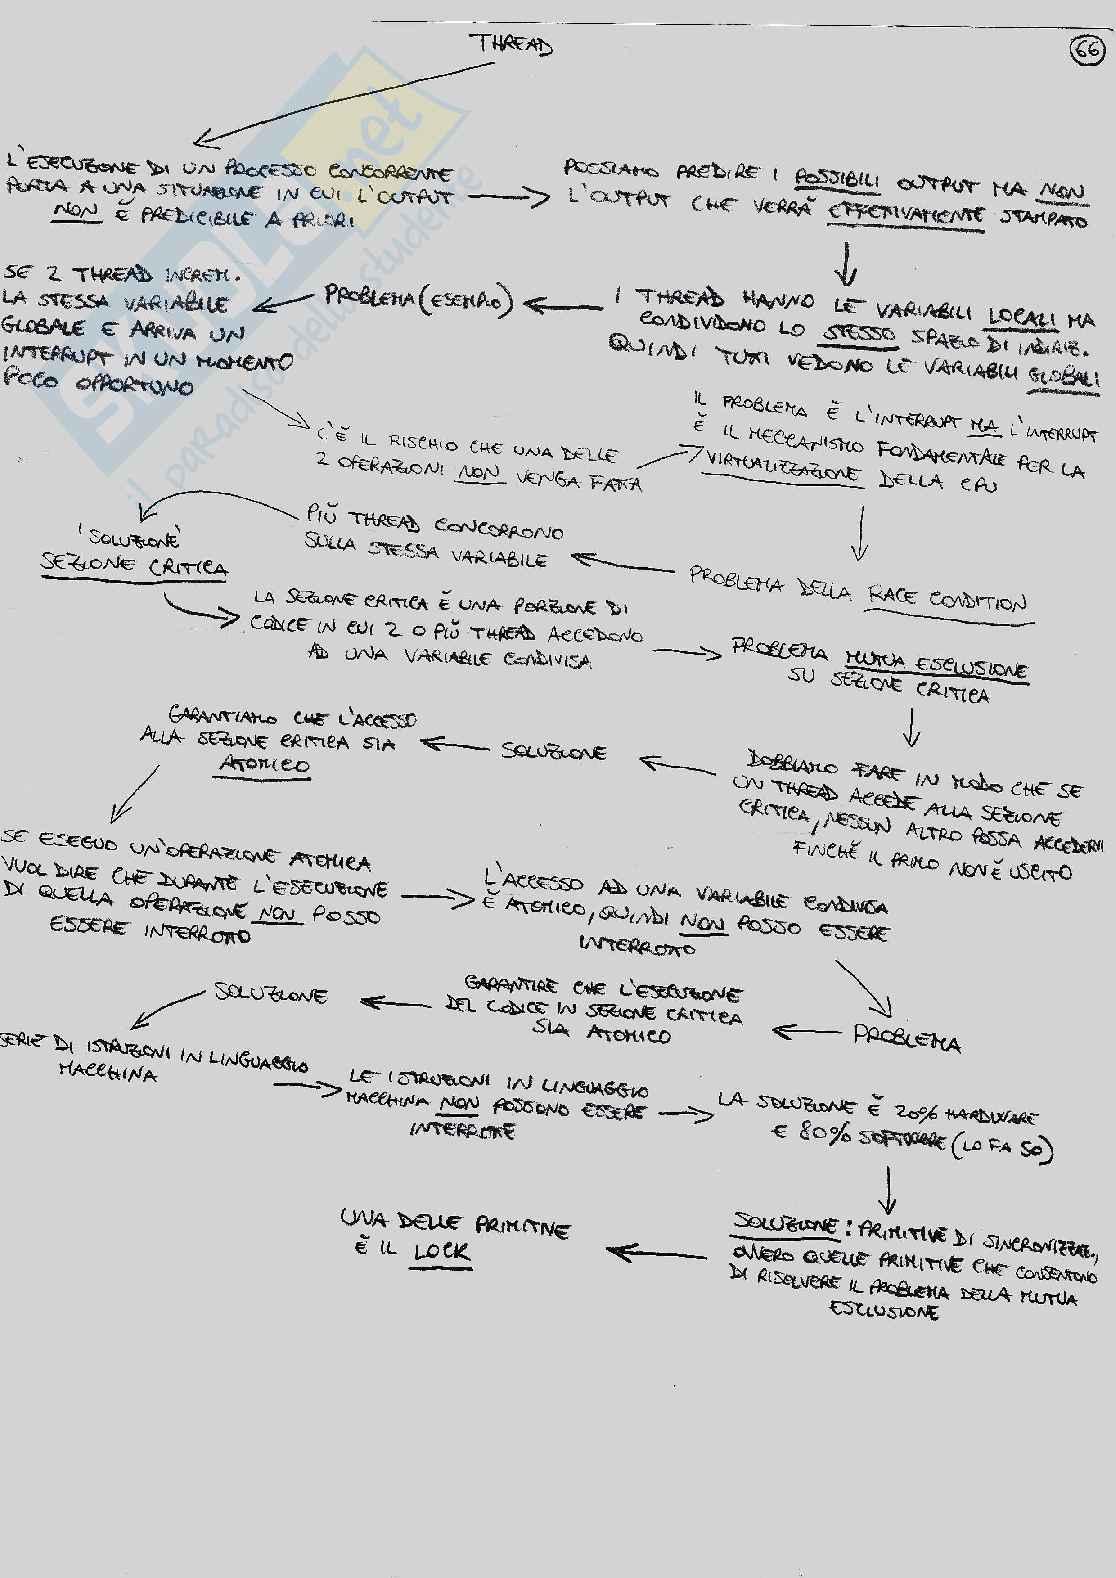 THREAD
66
L'ESECUZIONE DI UN PROCESSO CONCORRENTE
PORTA A UNA SITUAZIONE IN CUI L'OUTPUT
NON È PREDICIBILE A PRIORI
POSSIAMO PREDIRE I POSSIBILI OUTPUT MA NON
L'OUTPUT CHE VERRÀ EFFETTIVAMENTE STAMPATO
I THREAD HANNO LE VARIABILI LOCALI MA
CONDIVIDONO LO STESSO SPAZIO DI INDIRIZ.
QUINDI TUTTI VEDONO LE VARIABILI GLOBALI
PROBLEMA (ESEMPIO)
SE 2 THREAD INCREM.
LA STESSA VARIABILE
GLOBALE E ARRIVA UN
INTERRUPT IN UN MOMENTO
POCO OPPORTUNO
C'È IL RISCHIO CHE UNA DELLE
2 OPERAZIONI NON VENGA FATTA
IL PROBLEMA È L'INTERRUPT MA L'INTERRUPT
È IL MECCANISMO FONDAMENTALE PER LA
VIRTUALIZZAZIONE DELLA CPU
PROBLEMA DELLA RACE CONDITION
PIÙ THREAD CONCORRONO
SULLA STESSA VARIABILE
'SOLUZIONE'
SEZIONE CRITICA
LA SEZIONE CRITICA È UNA PORZIONE DI
CODICE IN CUI 2 O PIÙ THREAD ACCEDONO
AD UNA VARIABILE CONDIVISA
PROBLEMA MUTUA ESCLUSIONE
SU SEZIONE CRITICA
DOBBIAMO FARE IN MODO CHE SE
UN THREAD ACCEDE ALLA SEZIONE
CRITICA, NESSUN ALTRO POSSA ACCEDERVI
FINCHÈ IL PRIMO NON È USCITO
SOLUZIONE
GARANTIAMO CHE L'ACCESSO
ALLA SEZIONE CRITICA SIA
ATOMICO
SE ESEGUO UN'OPERAZIONE ATOMICA
VUOL DIRE CHE DURANTE L'ESECUZIONE
DI QUELLA OPERAZIONE NON POSSO
ESSERE INTERROTTO
L'ACCESSO AD UNA VARIABILE CONDIVISA
È ATOMICO, QUINDI NON POSSO ESSERE
INTERROTTO
PROBLEMA
GARANTIRE CHE L'ESECUZIONE
DEL CODICE IN SEZIONE CRITICA
SIA ATOMICO
SOLUZIONE
SERIE DI ISTRUZIONI IN LINGUAGGIO
MACCHINA
LE ISTRUZIONI IN LINGUAGGIO
MACCHINA NON POSSONO ESSERE
INTERROTTE
LA SOLUZIONE È 20% HARDWARE
E 80% SOFTWARE (LO FA SO)
SOLUZIONE: PRIMITIVE DI SINCRONIZZAZ.,
OVVERO QUELLE PRIMITIVE CHE CONSENTONO
DI RISOLVERE IL PROBLEMA DELLA MUTUA
ESCLUSIONE
UNA DELLE PRIMITIVE
È IL LOCK
SKUOLA.net
il paradiso dello studente